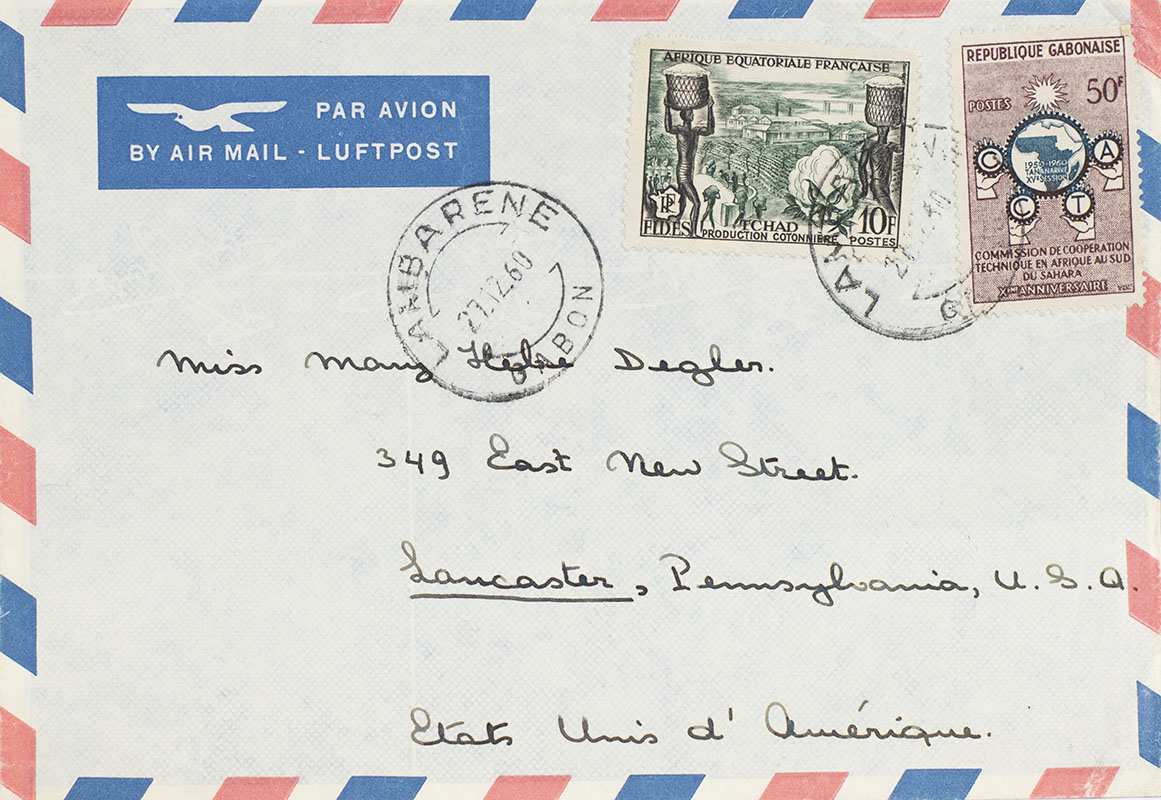 PAR AVION
BY AIR MAIL - LUFTPOST
AFRIQUE EQUATORIALE FRANÇAISE
RF
FIDES
TCHAD
10F
PRODUCTION COTONNIÈRE
POSTES
REPUBLIQUE GABONAISE
POSTES
50F
1950-1960
TANANARIVE
XVE SESSION
C
C
T
A
COMMISSION DE COOPERATION
TECHNIQUE EN AFRIQUE AU SUD
DU SAHARA
XÈME ANNIVERSAIRE
LAMBARENE
27.12.60
GABON
Miss Mary Hélène Degler.
349 East New Street.
Lancaster, Pennsylvania, U.S.A.
Etats Unis d'Amérique.